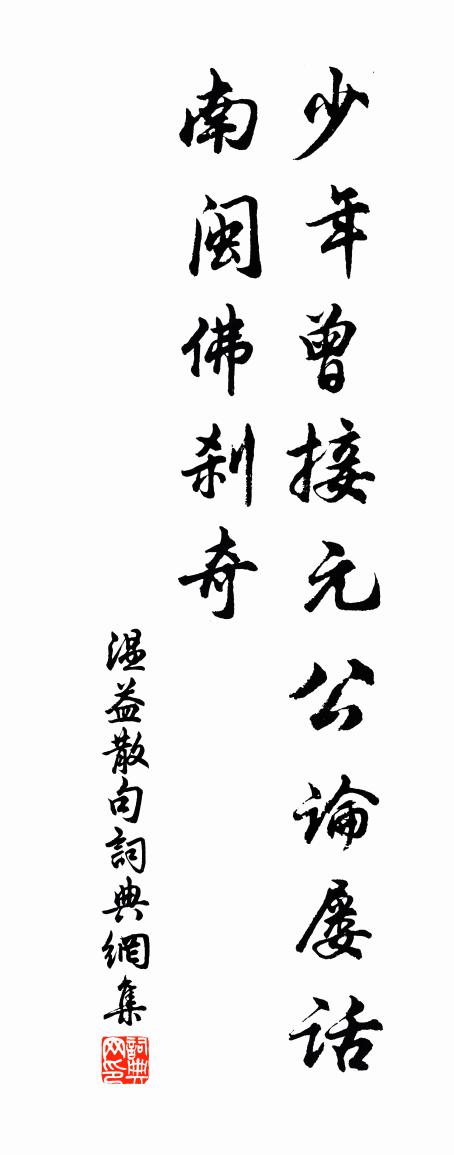 少年曾接元公論屡话
南闽佛刹奇
温益散句詞典網集
詞典网印